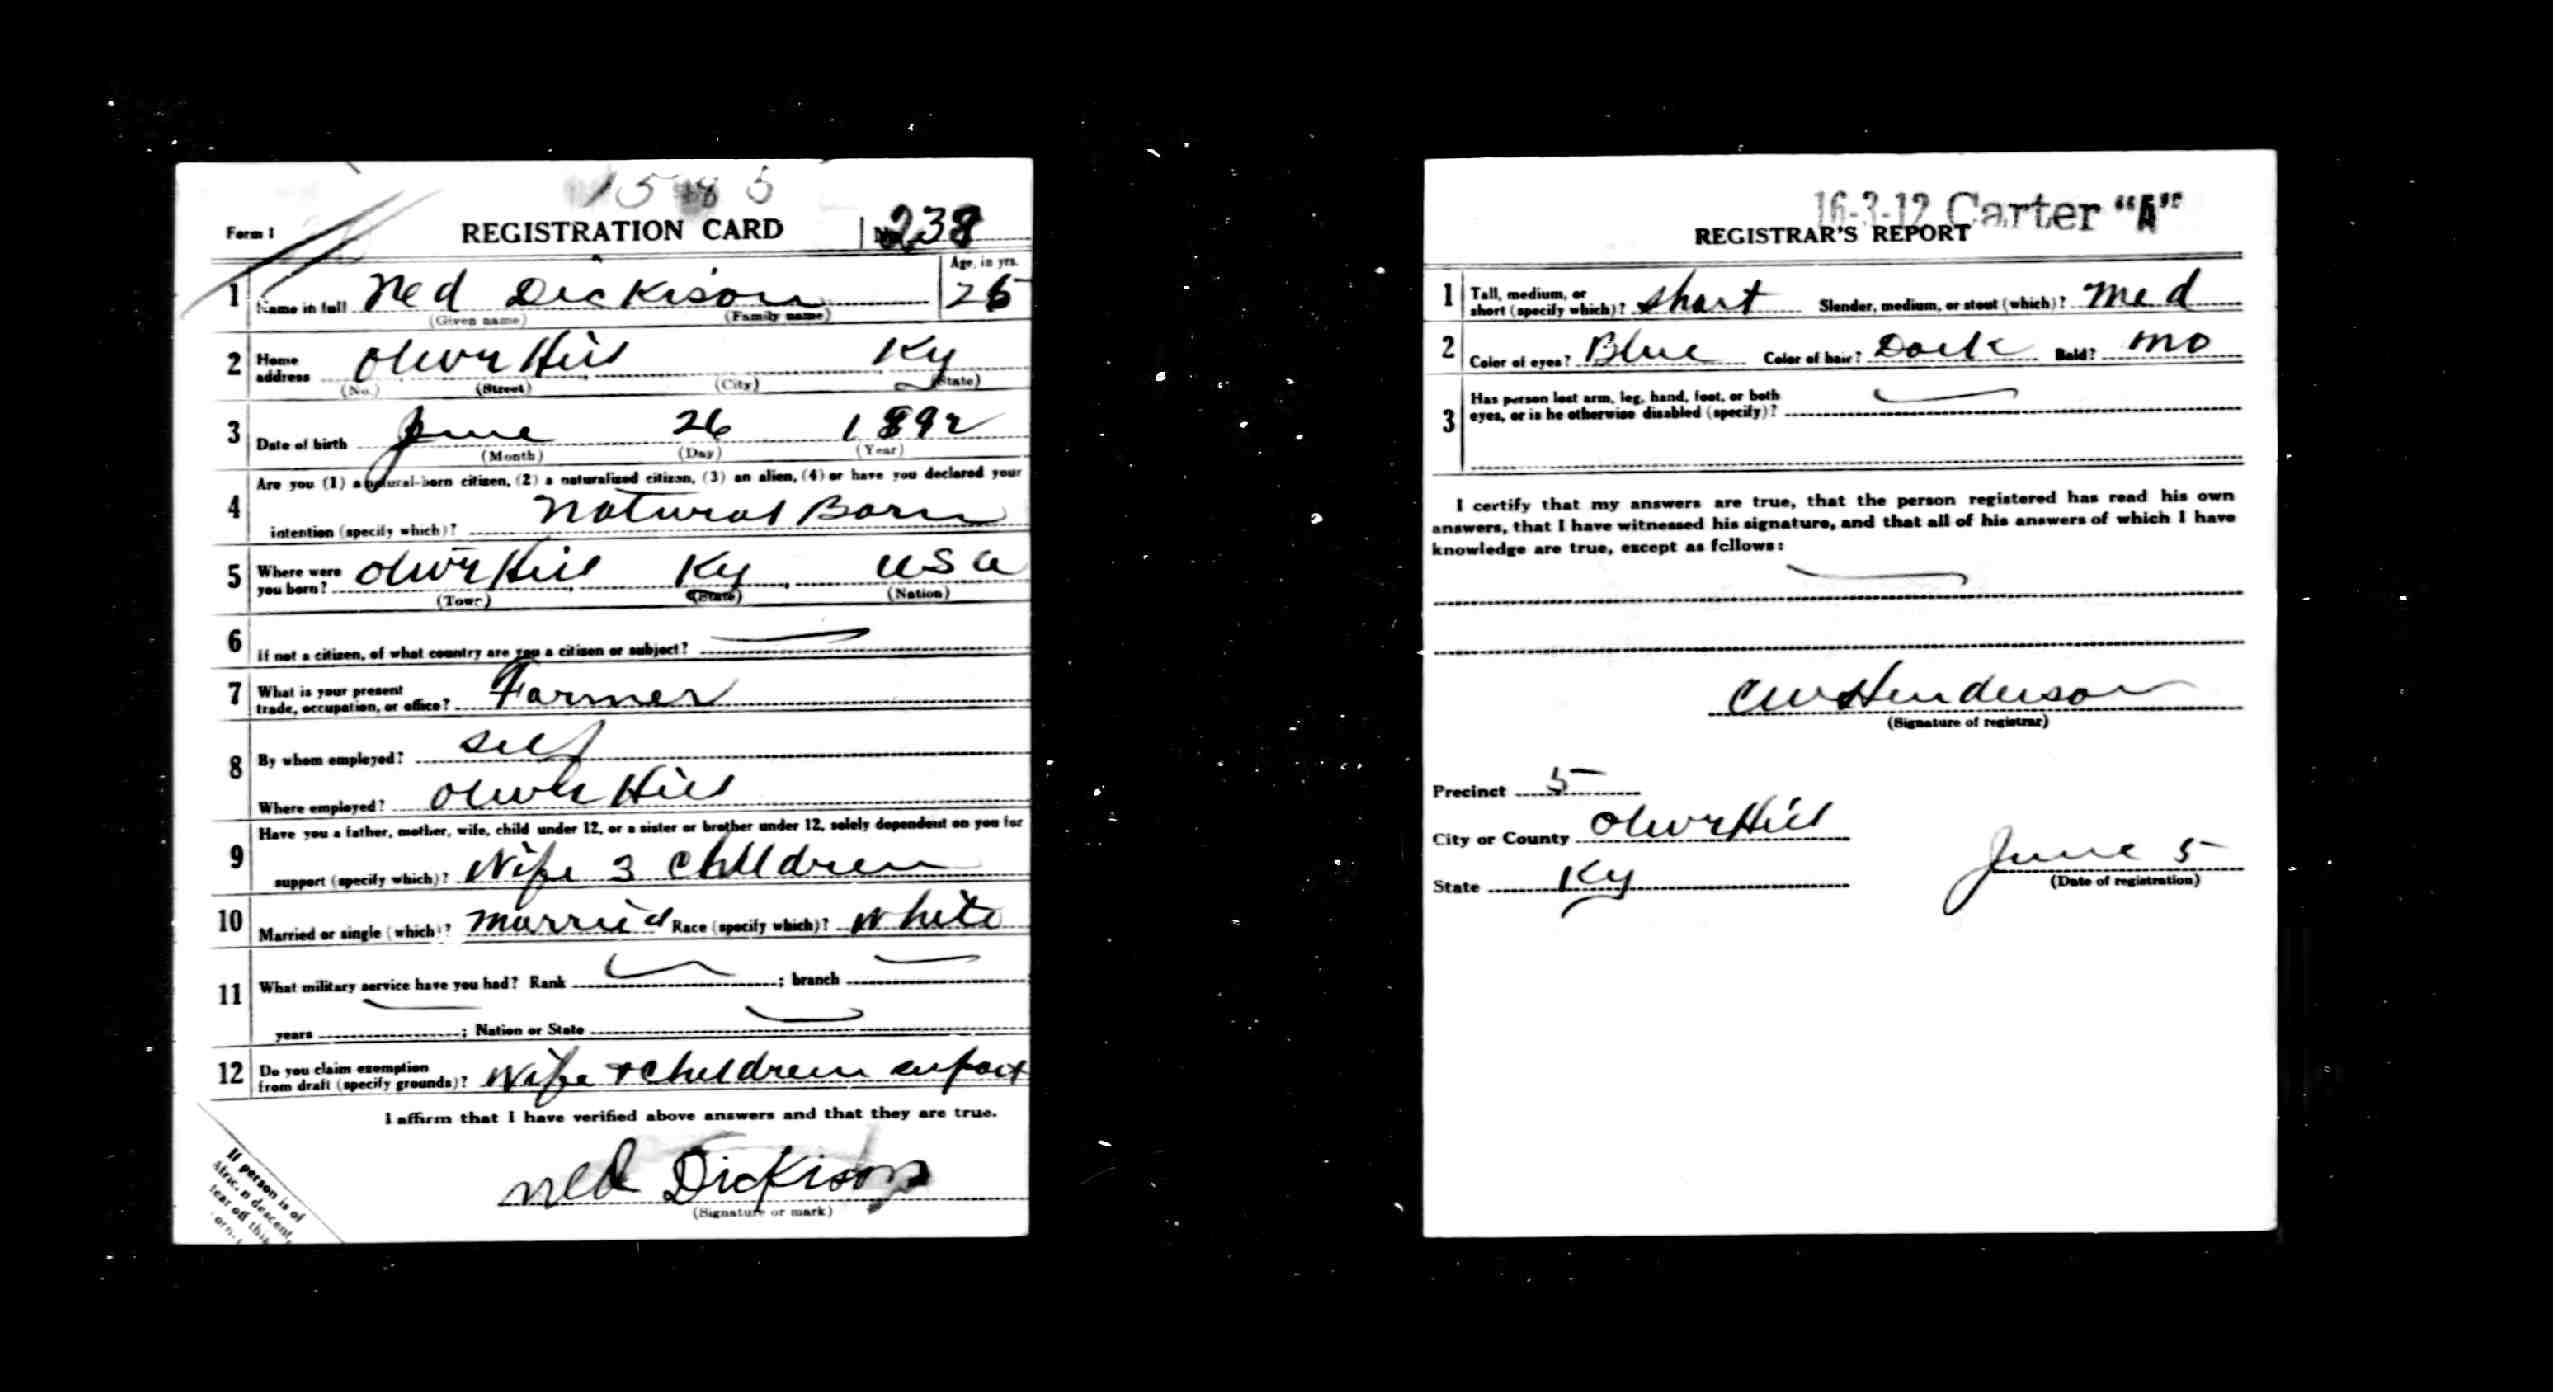 15 8 5
Form 1 REGISTRATION CARD No. 238
Age, in yrs.
1 Name in full Ned Dickison 25
(Given name) (Family name)
2 Home address Olive Hill Ky
(No.) (Street) (City) (State)
3 Date of birth June 26 1892
(Month) (Day) (Year)
Are you (1) a natural-born citizen, (2) a naturalized citizen, (3) an alien, (4) or have you declared your
4 intention (specify which)? Natural Born
5 Where were you born? Olive Hill Ky USA
(Town) (State) (Nation)
6 If not a citizen, of what country are you a citizen or subject?
7 What is your present
trade, occupation, or office? Farmer
8 By whom employed? Self
Where employed? Olive Hill
Have you a father, mother, wife, child under 12, or a sister or brother under 12, solely dependent on you for
9 support (specify which)? Wife 3 Children
10 Married or single (which)? Married Race (specify which)? White
11 What military service have you had? Rank ; branch
years ; Nation or State
12 Do you claim exemption
from draft (specify grounds)? Wife + Children
I affirm that I have verified above answers and that they are true.
Ned Dickison
(Signature or mark)
If person is of
African descent,
tear off this
corner
16-3-12 Carter "A"
REGISTRAR'S REPORT
1 Tall, medium, or
short (specify which)? Short Slender, medium, or stout (which)? Med
2 Color of eyes? Blue Color of hair? Dark Bald? no
Has person lost arm, leg, hand, foot, or both
3 eyes, or is he otherwise disabled (specify)?
I certify that my answers are true, that the person registered has read his own
answers, that I have witnessed his signature, and that all of his answers of which I have
knowledge are true, except as follows:
CW Henderson
(Signature of registrar)
Precinct 5
City or County Olive Hill
State Ky June 5
(Date of registration)